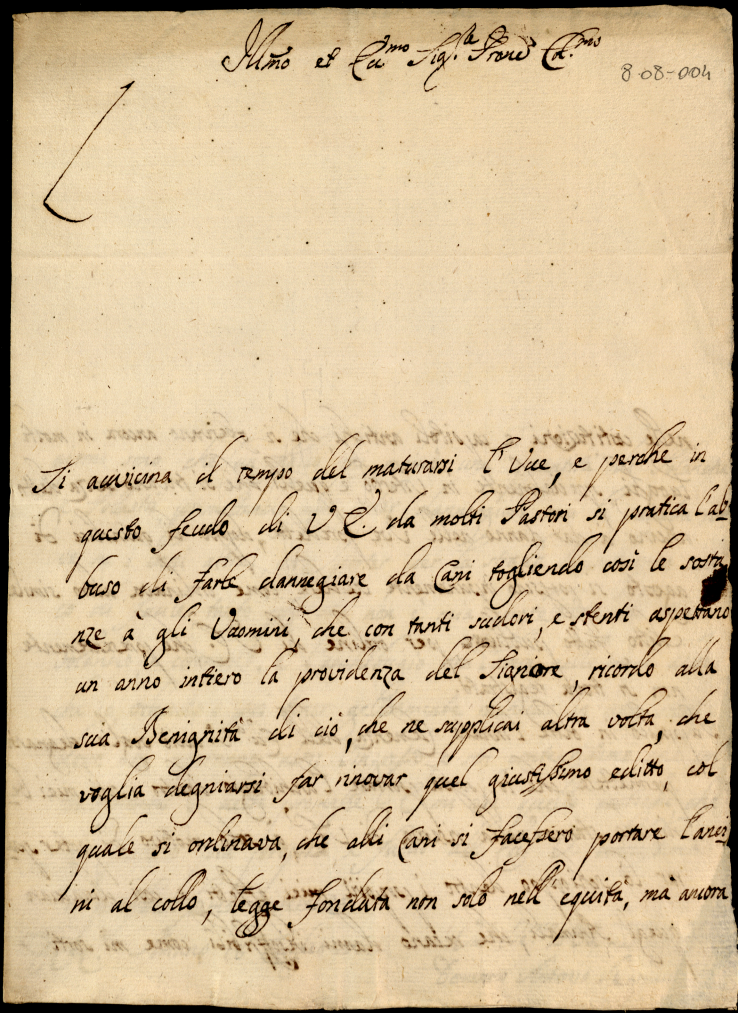 Illmo et Ecc.mo Sig.re Prone Col.mo
8-08-004
Si avvicina il tempo del maturarsi l'Vue, e perche in
questo feudo di V E. da molti Pastori si pratica l'ab-
buso di farle dannegiare da Cani togliendo così le sosta
nze à gli Vuomini, che con tanti sudori, e stenti aspettano
un anno intiero la providenza del Signore, ricordo alla
sua Benignità di ciò, che ne supplicai altra volta, che
voglia degniarsi far rinovar quel giustissimo editto, col
quale si ordinava, che alli Cani si facessero portare l'anci-
ni al collo, legge fondata non solo nell'equita, ma ancora